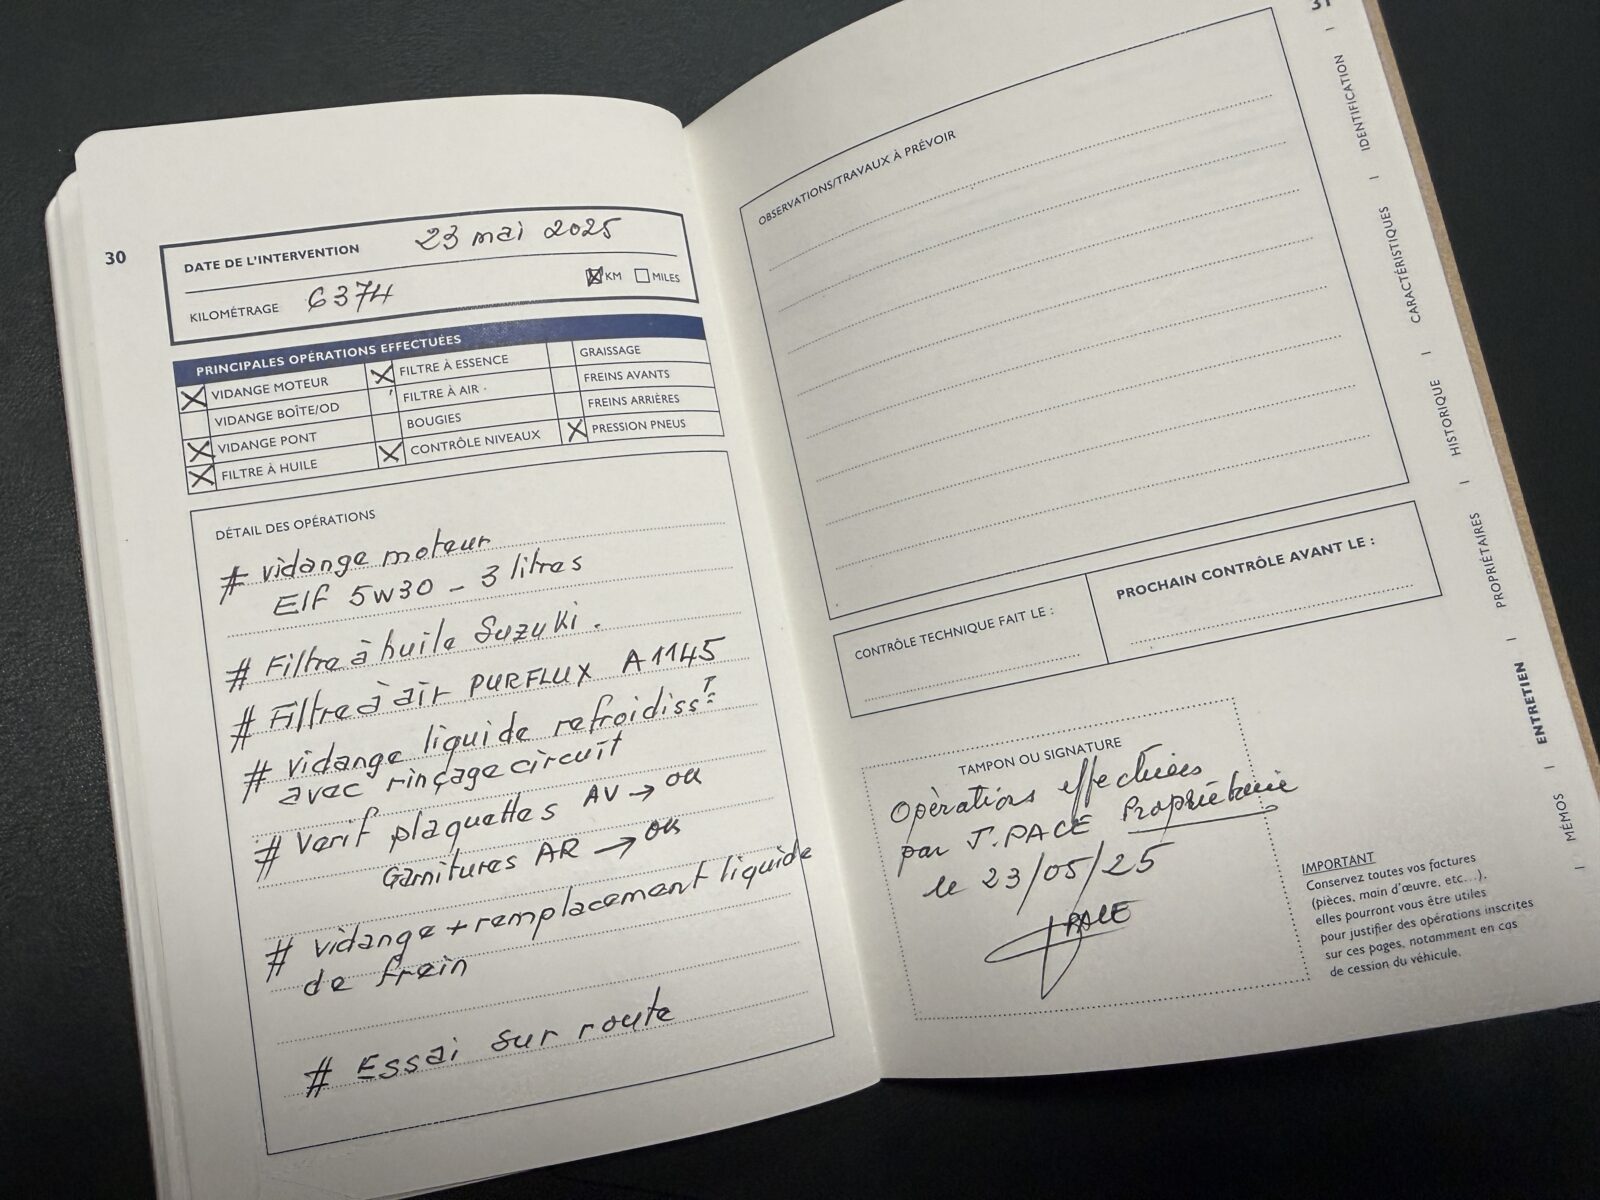 30
DATE DE L'INTERVENTION 23 mai 2025
KILOMÉTRAGE 6374 KM MILES
PRINCIPALES OPÉRATIONS EFFECTUÉES
VIDANGE MOTEUR FILTRE À ESSENCE GRAISSAGE
VIDANGE BOÎTE/OD FILTRE À AIR FREINS AVANTS
VIDANGE PONT BOUGIES FREINS ARRIÈRES
FILTRE À HUILE CONTRÔLE NIVEAUX PRESSION PNEUS
DÉTAIL DES OPÉRATIONS
# vidange moteur
Elf 5W30 - 3 litres
# Filtre à huile Suzuki.
# Filtre à air PURFLUX A1145
# vidange liquide refroidissT
avec rinçage circuit
# Verif plaquettes AV → OK
Garnitures AR → OK
# vidange + remplacement liquide
de frein
# Essai sur route
31
OBSERVATIONS/TRAVAUX À PRÉVOIR
CONTRÔLE TECHNIQUE FAIT LE :
PROCHAIN CONTRÔLE AVANT LE :
TAMPON OU SIGNATURE
Opérations effectuées
par J. PACE Propriétaire
le 23/05/25
JPACE
IMPORTANT
Conservez toutes vos factures
(pièces, main d'œuvre, etc...),
elles pourront vous être utiles
pour justifier des opérations inscrites
sur ces pages, notamment en cas
de cession du véhicule.
IDENTIFICATION
CARACTÉRISTIQUES
HISTORIQUE
PROPRIÉTAIRES
ENTRETIEN
MÉMOS